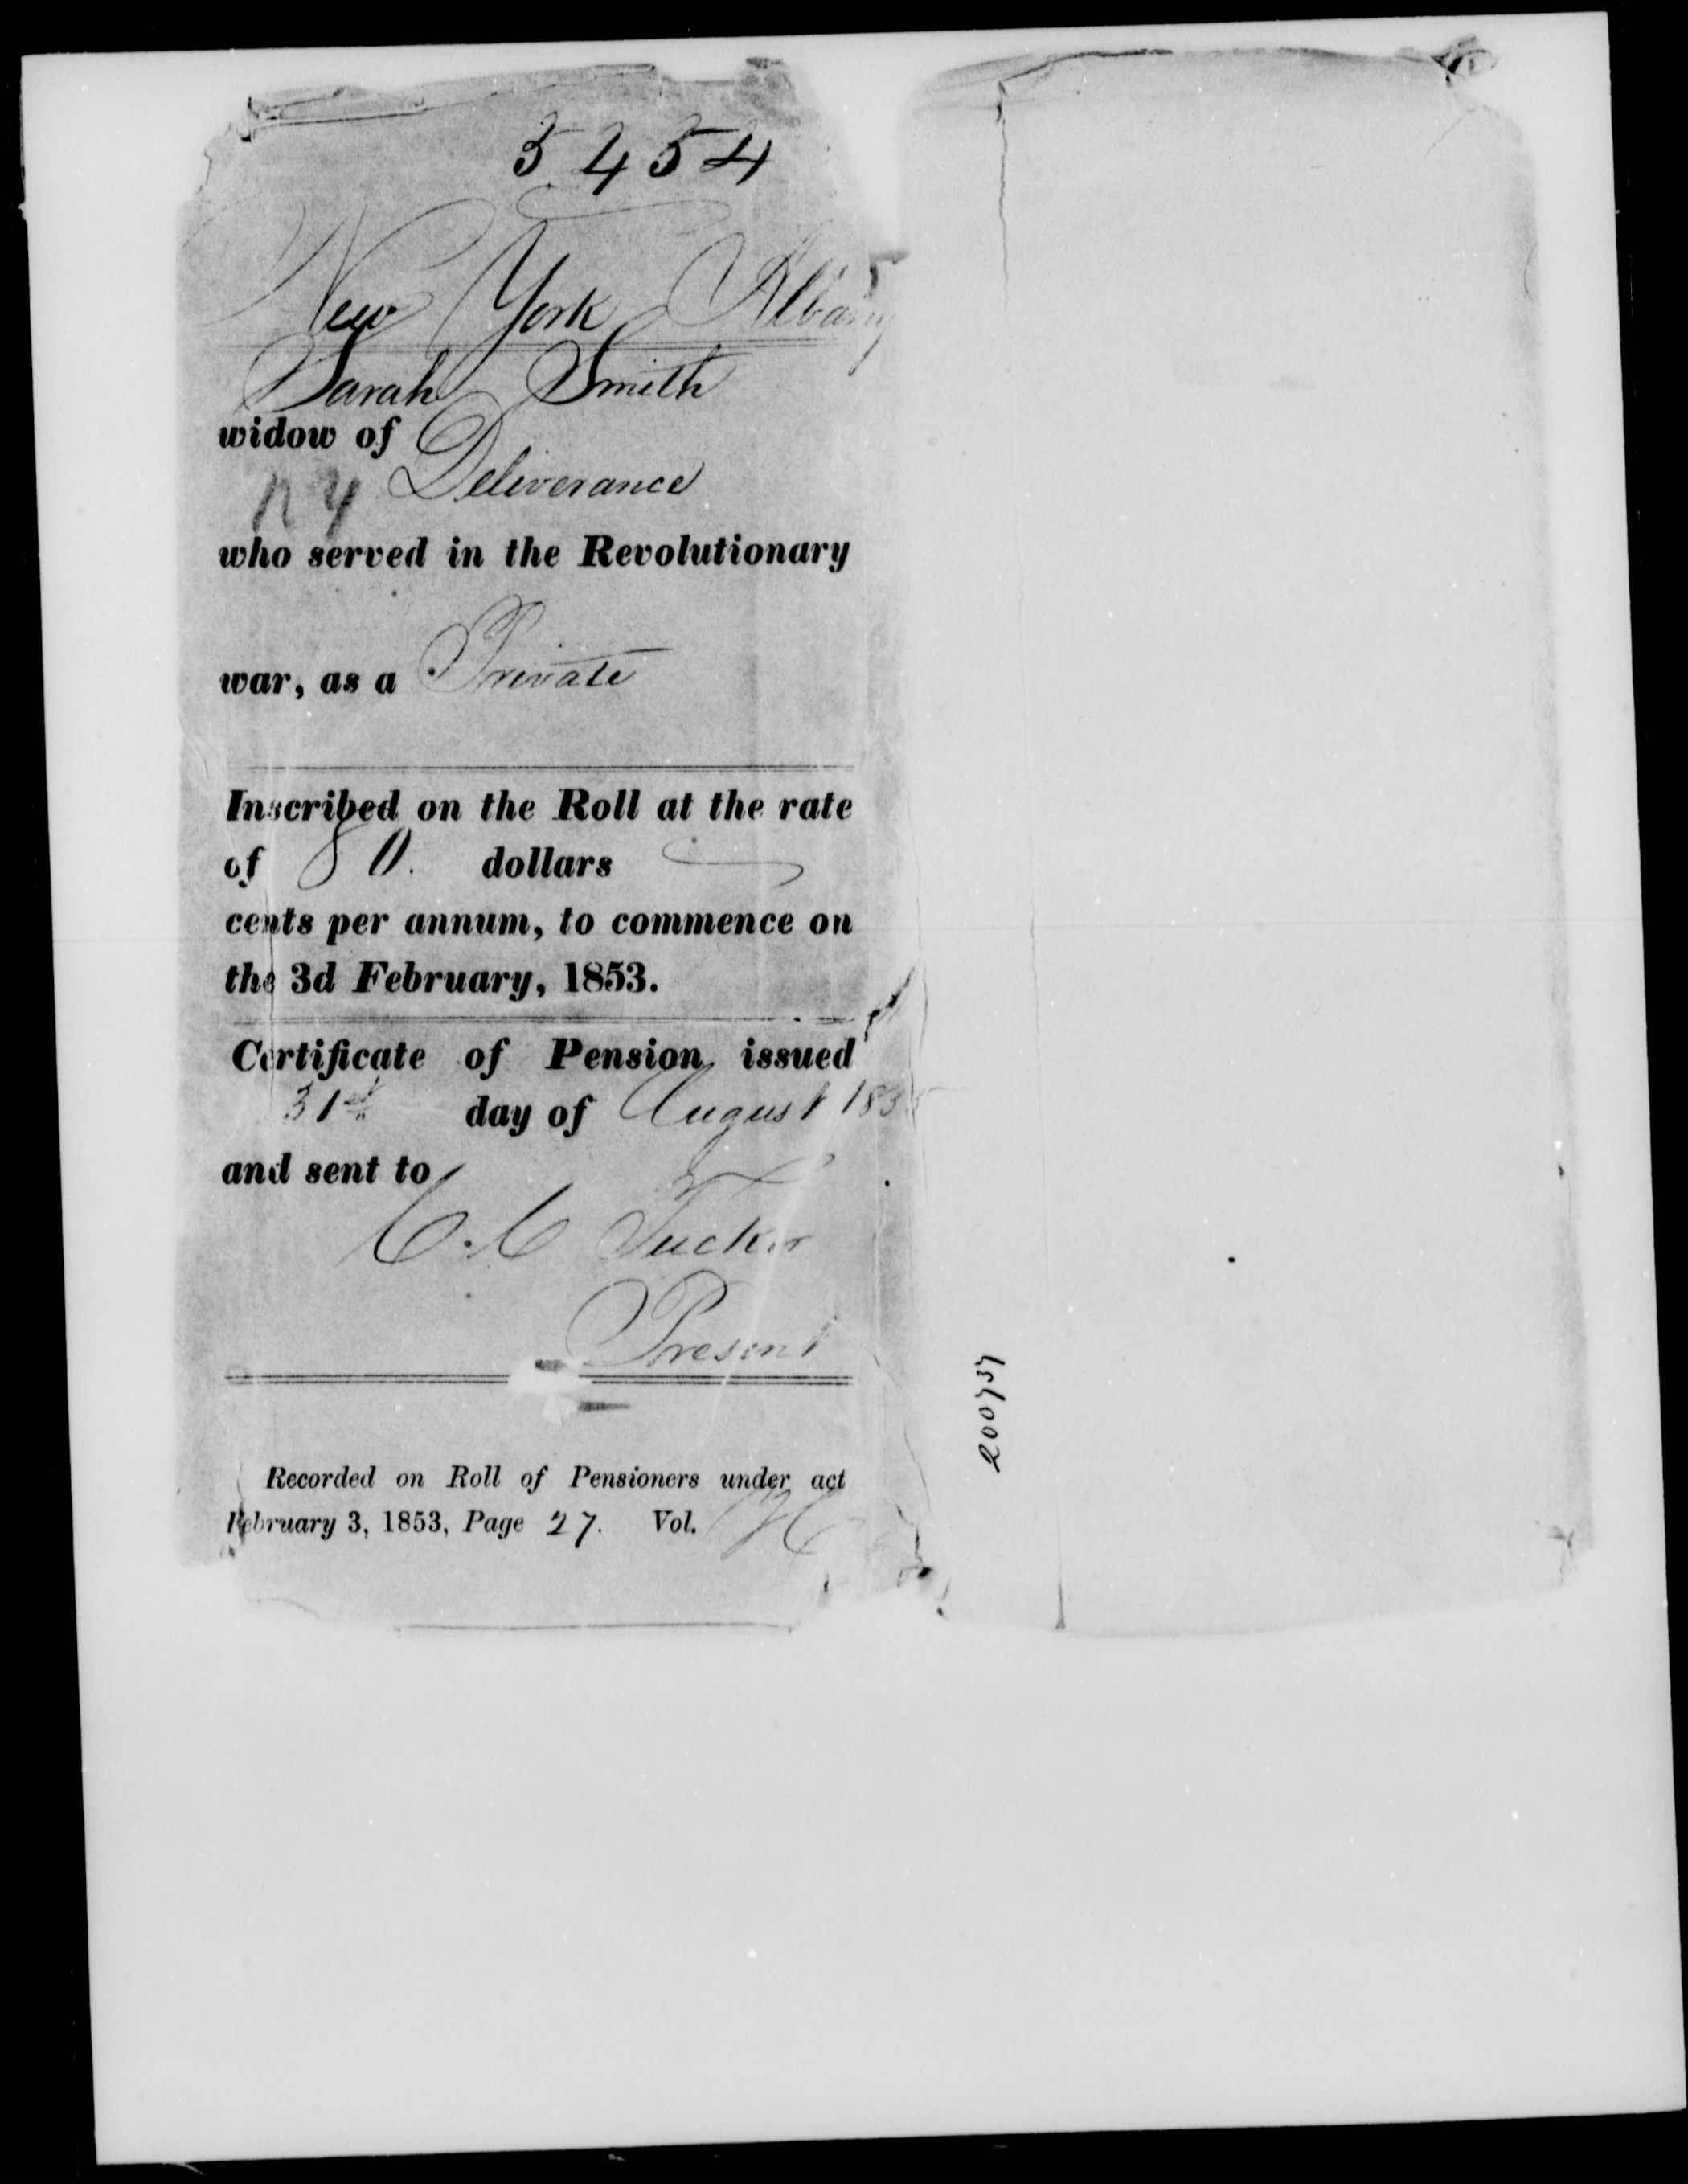 5454
New York Albany
Sarah Smith
widow of
Deliverance
NY
who served in the Revolutionary
war, as a Private
Inscribed on the Roll at the rate
of 80. dollars
cents per annum, to commence on
the 3d February, 1853.
Certificate of Pension issued
31st day of August
and sent to
C. C Tucker
Present
Recorded on Roll of Pensioners under act
February 3, 1853, Page 27. Vol.